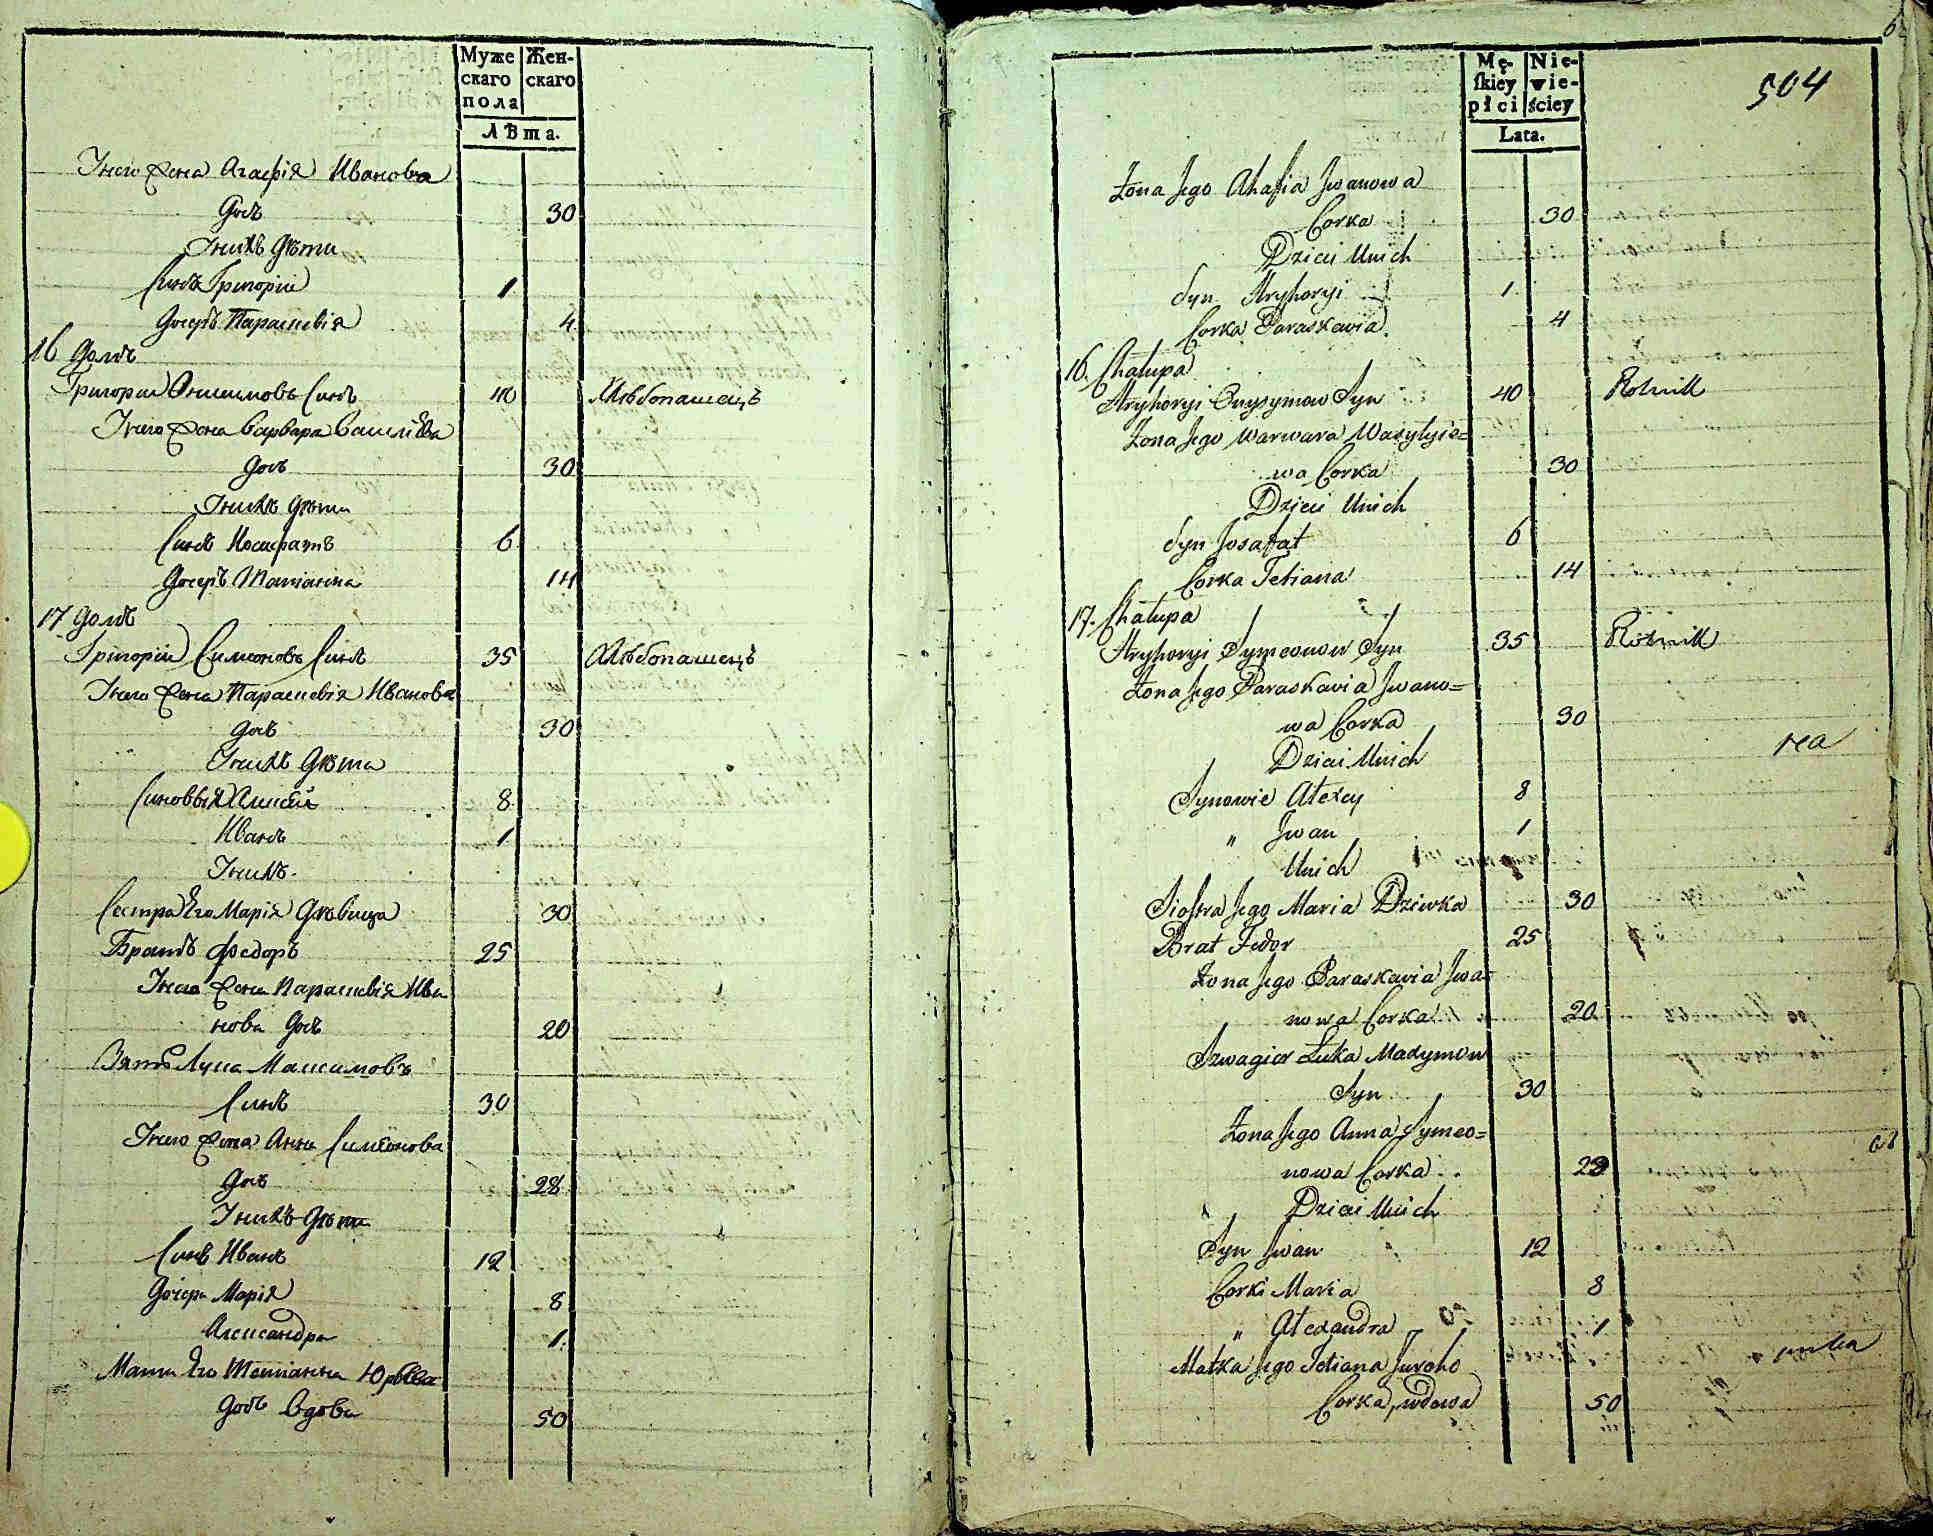 Муже
скаго
пола
Жен-
скаго
лѣта.
У него жена Агафія Иванова
Дочь
30
У нихъ дѣти
Синъ Григорій
1
Дочерь Параскевія
4
16 Домъ
Григорій Онисимовъ Синъ
40
Хлѣбопашецъ
У него жена Варвара Василіева
Дочь
30
У нихъ дѣти
Синъ Иосафатъ
6
Дочерь Татіанна
14
17 Домъ
Григорій Симеоновъ Синъ
35
Хлѣбопашецъ
У него жена Параскевія Иванова
Дочь
30
У нихъ дѣти
Синовья Алексѣй
8
Иванъ
1
У нихъ
Сестра Его Марія Дѣвица
30
Братъ Федоръ
25
У него жена Параскевія Ива
нова Дочь
20
Зять Лука Максимовъ
Синъ
30
У него жена Анна Симеонова
Дочь
28
У нихъ дѣти
Синъ Иванъ
12
Дочери Марія
8
Александра
1
Мати Его Тетіанна Юрьева
Дочь Вдова
50
Mę-
skiey
płci
Nie-
wie-
ściey
Lata.
504
Żona Jego Ahafia Jwanowa
Corka
30
Dzieci Unich
Syn Hryhoryi
1
Corka Paraskewia
4
16. Chałupa
Hryhoryi Onysymow Syn
40
Rolnik
Żona Jego Warwara Wasylyie=
wa Corka
30
Dzieci Unich
Syn Josafat
6
Corka Tetiana
14
17. Chałupa
Hryhoryi Symeonow Syn
35
Rolnik
Żona Jego Paraskavia Jwano=
wa Corka
30
Dzieci Unich
Synowie Alexy
8
" Jwan
1
Unich
Siostra Jego Maria Dziewka
30
Brat Fedor
25
Żona Jego Paraskavia Jwa=
nowa Corka
20
Szwagier Łuka Maxymow
Syn
30
Żona Jego Anna Symeo=
nowa Corka
28
Dzieci Unich
Syn Jwan
12
Corki Maria
8
" Alexandra
1
Matka Jego Tetiana Jurcho
Corka, wdowa
50